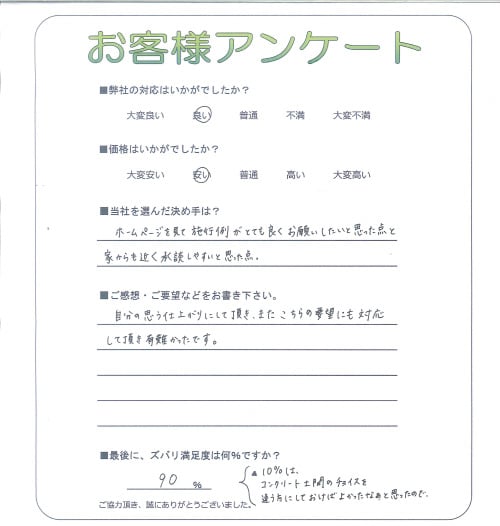 お客様アンケート
■弊社の対応はいかがでしたか？
大変良い 良い 普通 不満 大変不満
■価格はいかがでしたか？
大変安い 安い 普通 高い 大変高い
■当社を選んだ決め手は？
ホームページを見て施行例がとても良くお願いしたいと思った点と
家からも近く相談しやすいと思った点。
■ご感想・ご要望などをお書き下さい。
自分の思う仕上がりにして頂き、またこちらの要望にも対応
して頂き有難かったです。
■最後に、ズバリ満足度は何％ですか？
90 ％
▲10％は、
コンクリート土間のチョイスを
違う方にしておけばよかったなぁと思ったので。
ご協力頂き、誠にありがとうございました。